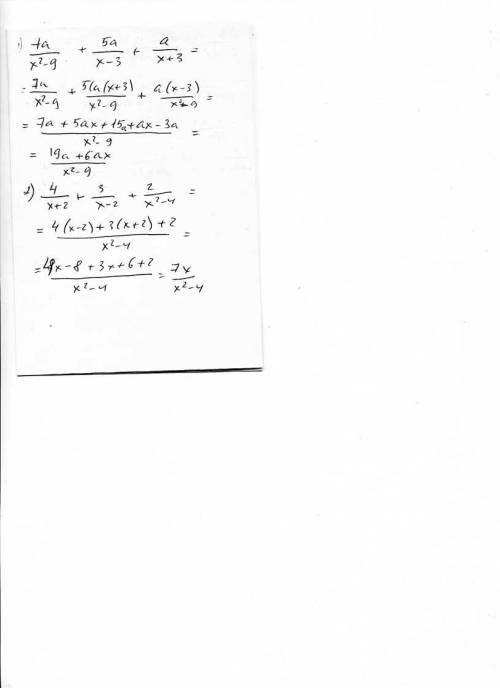 1) 7a/(x²-9) + 5a/(x-3) + a/(x+3) =
= 7a/(x²-9) + 5(a(x+3)/(x²-9) + a(x-3)/(x²-9) =
= (7a + 5ax + 15a + ax - 3a)/(x²-9) =
= (19a + 6ax)/(x²-9)
2) 4/(x+2) + 3/(x-2) + 2/(x²-4) =
= (4(x-2) + 3(x+2) + 2)/(x²-4) =
= (4x - 8 + 3x + 6 + 2)/(x²-4) = 7x/(x²-4)